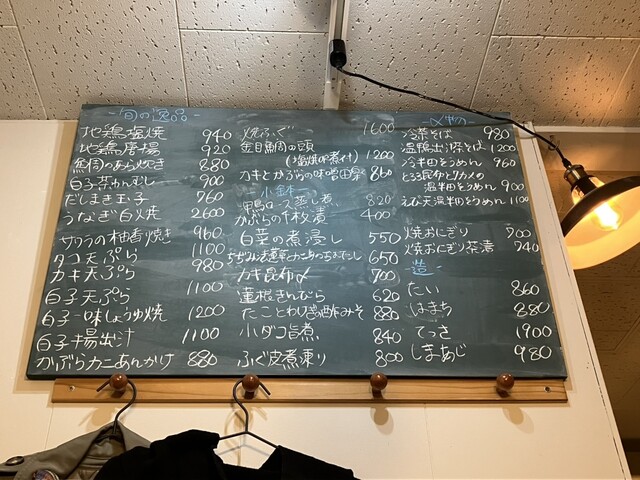 -旬の品-
地鶏塩焼 940
地鶏唐揚 920
魚周のあら炊き 880
白子茶わんむし 900
だしまき玉子 760
うなぎ白焼 2600
サワラの柚香焼き 960
タコ天ぷら 1100
カキ天ぷら 980
白子天ぷら 1100
白子一味しょうゆ焼 1200
白子揚出汁 1100
かぶらカニあんかけ 880
焼ふぐ 1600
金目鯛の頭
(塩焼or煮付) 1200
カキとかぶらの味噌田楽 860
-小鉢-
鴨ロース蒸し煮 820
かぶらの千枚漬 400
白菜の煮浸し 550
ちぢみ法蓮草カニあっちおだし 650
カキ昆布〆 700
蓮根きんぴら 620
たことわけぎの酢みそ 880
小ダコ旨煮 840
ふぐ皮煮凍り 800
-〆物-
冷茶そば 980
温鴨出汁茶そば 1200
冷半田そうめん 960
とろろ昆布とワカメの
温半田そうめん 900
えび天温半田そうめん 1100
焼おにぎり 500
焼おにぎり茶漬 740
-造-
たい 860
はまち 880
てっさ 1900
しまあじ 980